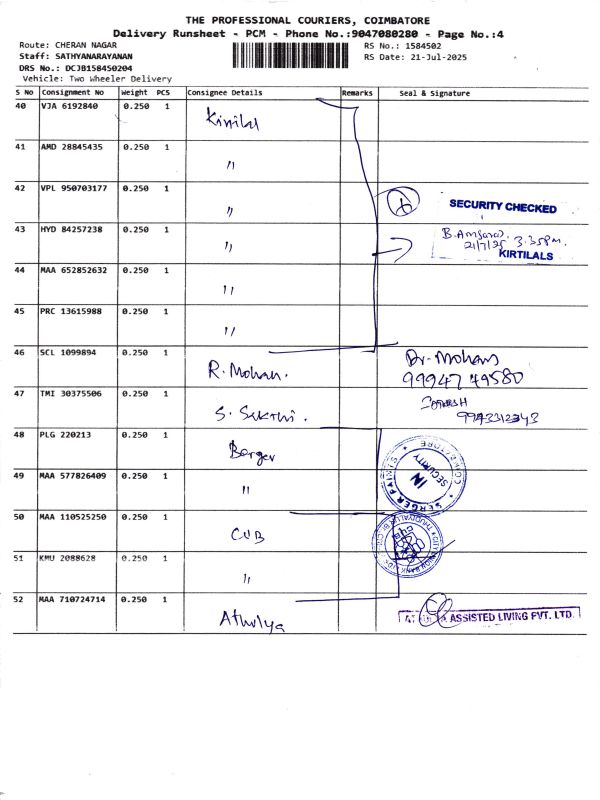 THE PROFESSIONAL COURIERS, COIMBATORE
Delivery Runsheet - PCM - Phone No.:9047080280 - Page No.:4
Route: CHERAN NAGAR
RS No.: 1584502
Staff: SATHYANARAYANAN
RS Date: 21-Jul-2025
DRS No.: DCJB158450204
Vehicle: Two Wheeler Delivery
S No Consignment No Weight PCS Consignee Details Remarks Seal & Signature
40 VJA 6192840 0.250 1 Kirtilal
41 AMD 28845435 0.250 1 "
42 VPL 950703177 0.250 1 "
SECURITY CHECKED
43 HYD 84257238 0.250 1 "
21/7/25 3.35pm.
KIRTILALS
44 MAA 652852632 0.250 1 "
45 PRC 13615988 0.250 1 "
46 SCL 1099894 0.250 1 R. Mohan. Dr. Mohans
99947 49580
47 TMI 30375506 0.250 1 S. Sakthi.
9943312343
48 PLG 220213 0.250 1 Berger
BERGER PAINTS COIMBATORE
SECURITY
IN
49 MAA 577826409 0.250 1 "
50 MAA 110525250 0.250 1 CUB
51 KMU 2088628 0.250 1 "
52 MAA 710724714 0.250 1 Athulya
ASSISTED LIVING PVT. LTD.